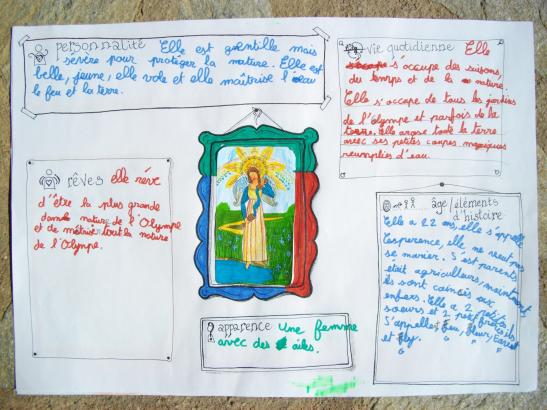 personnalité Elle est gentille mais
sévère pour protéger la nature. Elle est
belle, jeune, elle vole et elle maîtrise l'eau
le feu et la terre.
vie quotidienne Elle
s'occupe des saisons,
du temps et de la nature.
Elle s'occupe de tous les jardins
de l'Olympe et parfois de la
terre. Elle arose toute la terre
avec ses petites coupes magiques
remplies d'eau.
rêves elle rêve
d'être la plus grande
dans nature de l'Olympe
et de métriser tout la nature
de l'Olympe.
apparence Une femme
avec des ailes.
âge/éléments
d'histoire
Elle a 22 ans, elle s'appelle
elle ne veut pas
se marier. S'est parents
était agriculteurs, maintenant
ils sont coincés aux
enfers. Elle a 2 petites
soeurs et 2 petit frères ils
S'appelles Feu, Fleurs,
et Fly.
G G F F